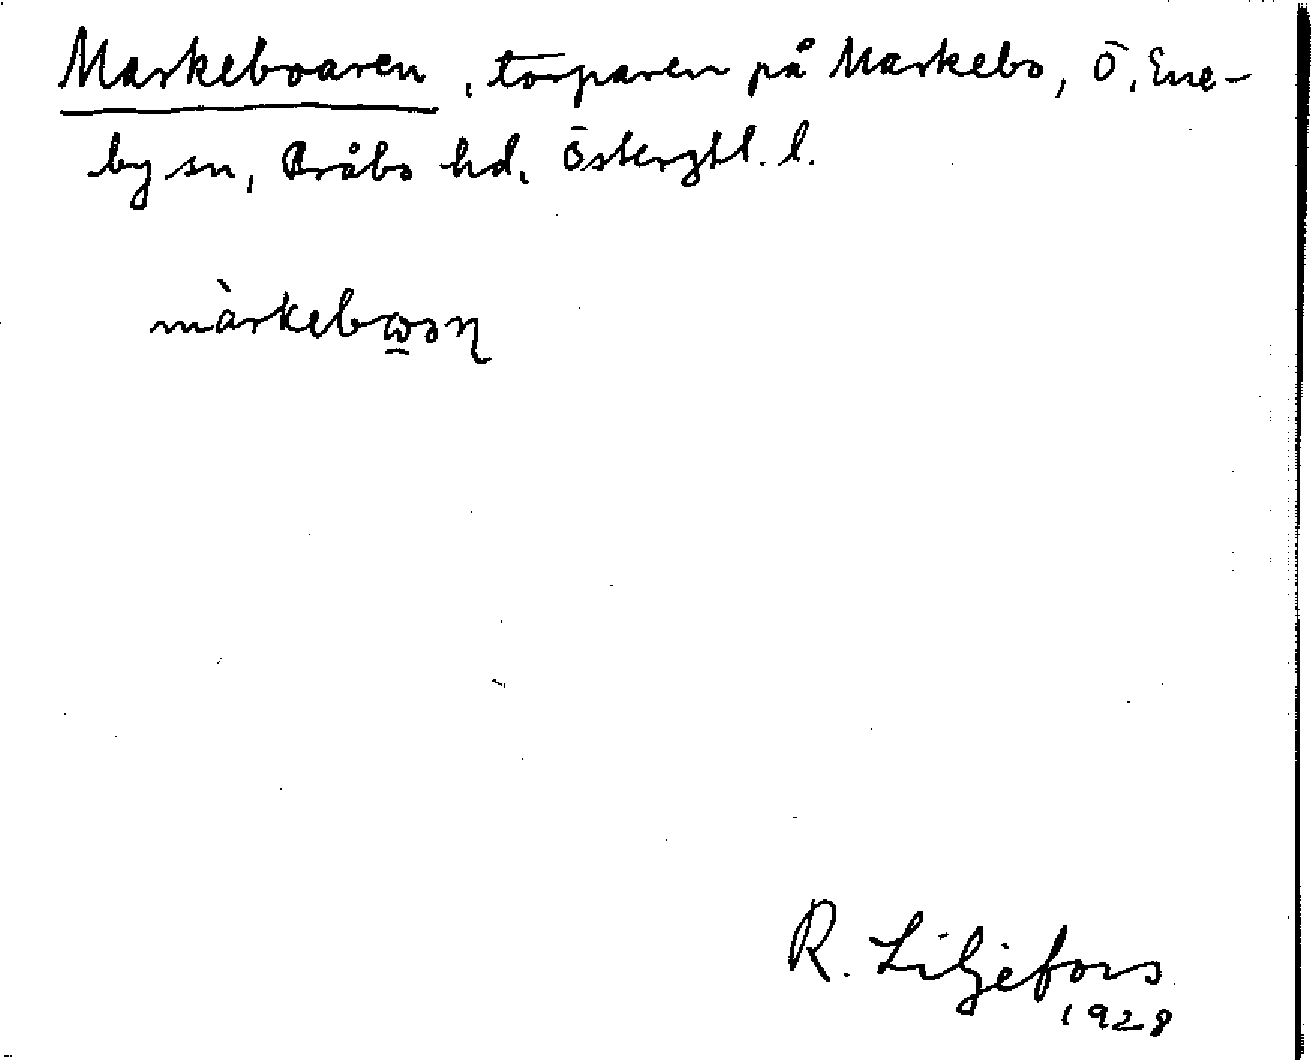 Markeboaren, torparen på Markebo, Ö. Ene-
by sn, Bråbo hd. Östergtl. l.
R. Liljefors
1928